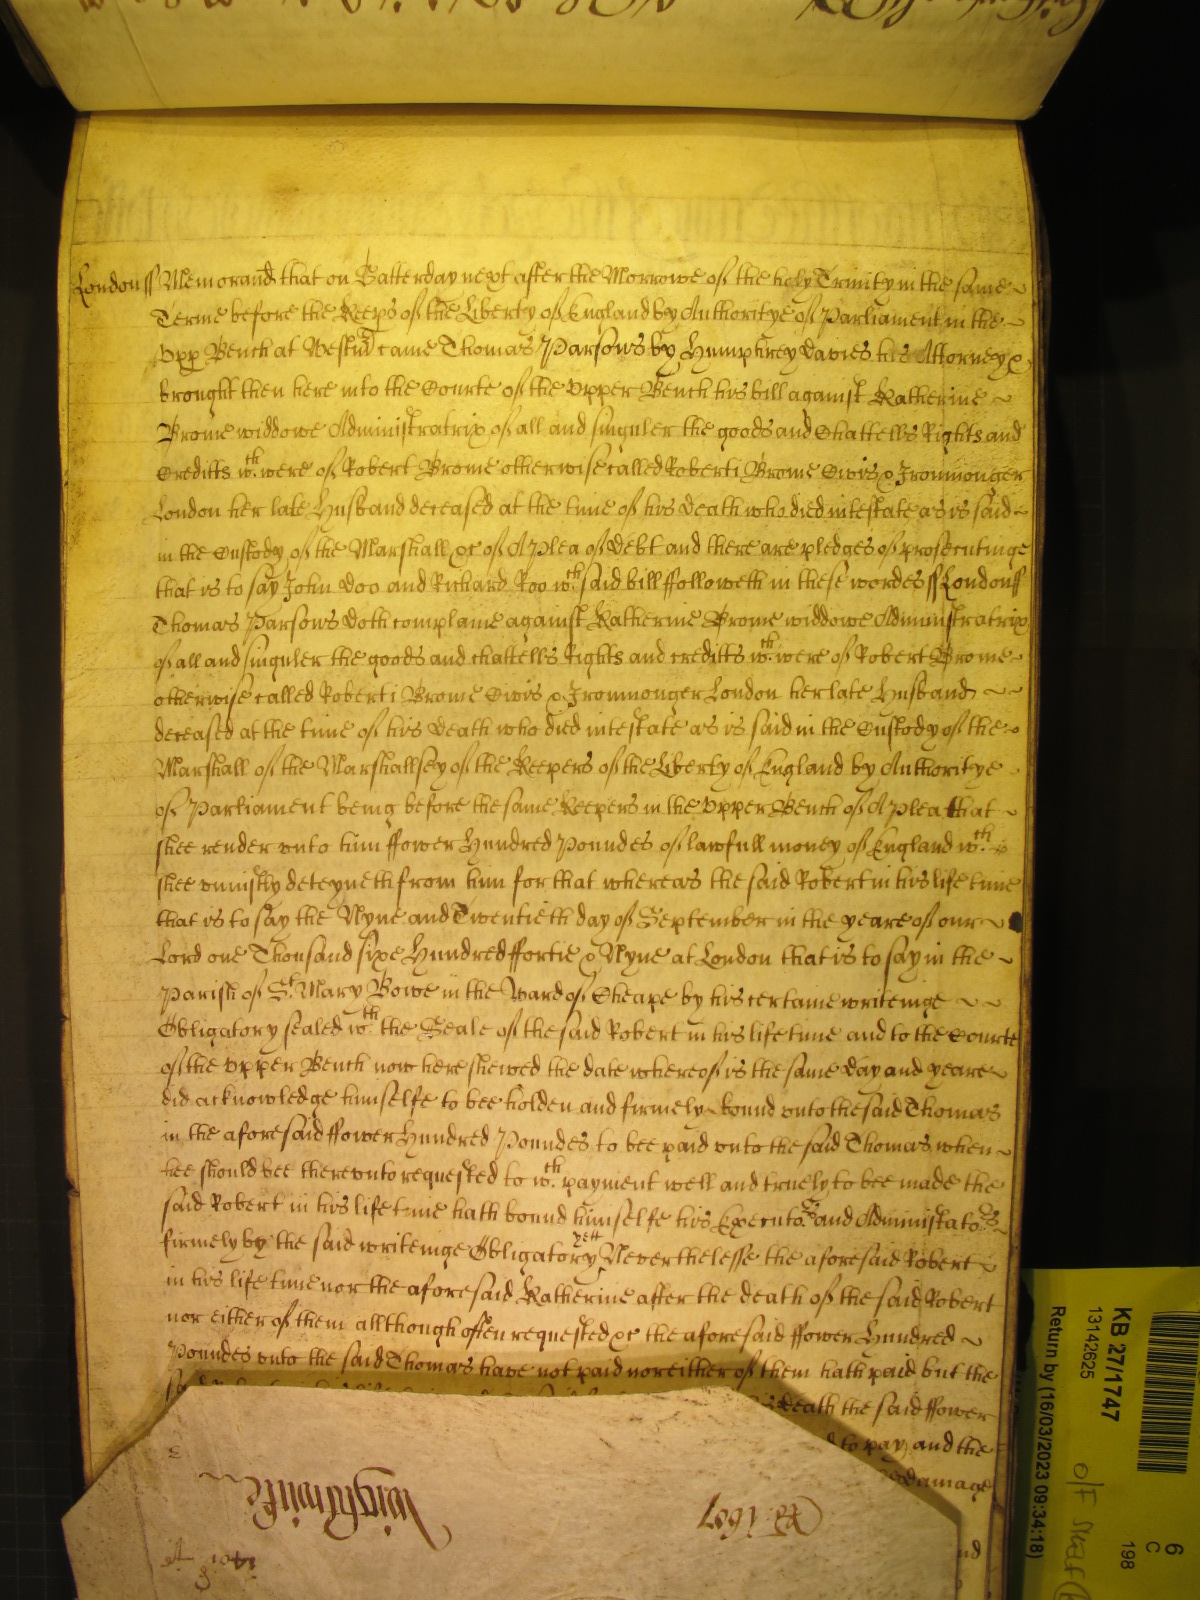 London ss Memorand that on Satterday next after the Morrowe of the holy Trinity in the same
Terme before the Keeps of the Liberty of England by Authoritye of Parliament in the
Vpp Bench at Westm came Thomas Parsons by Humphrey Davies his Attorney &
brought then here into the Courte of the Vpper Bench his bill against Katherine
Brome widdowe Administratrix of all and singuler the goods and Chattells Rights and
Creditts wth were of Robert Brome otherwise called Roberti Brome Civis & Ironmonger
London her late Husband deceased at the time of his death who died intestate as is said
in the Custody of the Marshall &c of A Plea of debt and there are pledges of prosecutinge
that is to say John Doo and Richard Roo wth said bill ffolloweth in these wordes ss London ss
Thomas Parsons doth complaine against Katherine Brome widdowe Administratrix
of all and singuler the goods and chattells Rights and creditts wth were of Robert Brome
otherwise called Roberti Brome Civis & Ironmonger London her late Husband
deceased at the time of his death who died intestate as is said in the Custody of the
Marshall of the Marshallsey of the Keepers of the Liberty of England by Authoritye
of Parliament being before the same Keepers in the Vpper Bench of A Plea that
shee render vnto him ffower Hundred Poundes of lawfull money of England wth
shee vniustly deteyneth from him for that whereas the said Robert in his life time
that is to say the Nyne and Twentieth day of September in the yeare of our
Lord one Thousand sixe Hundred ffortie & Nyne at London that is to say in the
Parish of St Mary Bowe in the Ward of Cheape by his certaine writeinge
Obligatory sealed wth the Seale of the said Robert in his life time and to the Courte
of the Vpper Bench now here shewed the date whereof is the same day and yeare
did acknowledge himselfe to bee holden and firmely bound vnto the said Thomas
in the aforesaid ffower Hundred Poundes to bee paid vnto the said Thomas when
hee should bee therevnto requested to wth payment well and truely to bee made the
said Robert in his life time hath bound himselfe his Executors and Administators
firmely by the said writeinge Obligatory Neverthelesse the aforesaid Robert
in his life time nor the aforesaid Katherine after the death of the said Robert
nor either of them allthough often requested &c the aforesaid ffower Hundred
Poundes vnto the said Thomas have not paid nor either of them hath paid but the
death the said ffower
to pay and the
damage
KB 27/1747
13142625
Return by (16/03/2023 09:34:18)
6
C
198